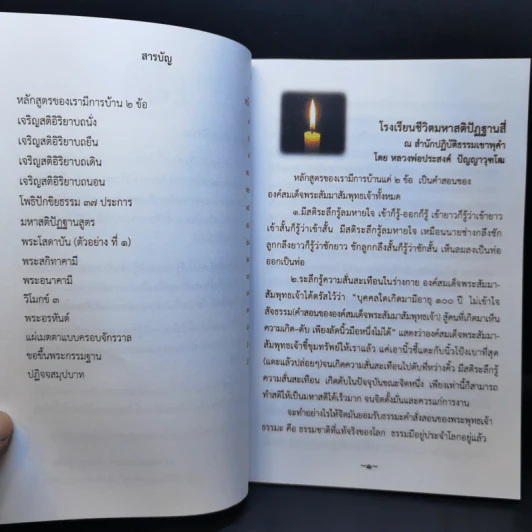 สารบัญ
หลักสูตรของเรามีการบ้าน ๒ ข้อ
เจริญสติอิริยาบถนั่ง
เจริญสติอิริยาบถยืน
เจริญสติอิริยาบถเดิน
เจริญสติอิริยาบถนอน
โพธิปักขิยธรรม ๓๗ ประการ
มหาสติปัฏฐานสูตร
พระโสดาบัน (ตัวอย่าง ที่ ๑)
พระสกิทาคามี
พระอนาคามี
วิโมกข์ ๓
พระอรหันต์
แผ่เมตตาแบบครอบจักรวาล
ขอขึ้นพระกรรมฐาน
ปฏิจจสมุปบาท
โรงเรียนชีวิตมหาสติปัฏฐานสี่
ณ สำนักปฏิบัติธรรมเขาพุคำ
โดย หลวงพ่อประสงค์ ปัญญาวุฑโฒ
หลักสูตรของเรามีการบ้านแค่ ๒ ข้อ เป็นคำสอนของ
องค์สมเด็จพระสัมมาสัมพุทธเจ้าทั้งหมด
๑.มีสติระลึกรู้ลมหายใจ เข้าก็รู้-ออกก็รู้ เข้ายาวก็รู้ว่าเข้ายาว
เข้าสั้นก็รู้ว่าเข้าสั้น มีสติระลึกรู้ลมหายใจ เหมือนนายช่างกลึงชัก
ลูกกลึงยาวก็รู้ว่าชักยาว ชักลูกกลึงสั้นก็รู้ว่าชักสั้น เห็นลมลงเป็นท่อ
ออกเป็นท่อ
๒.ระลึกรู้ความสั่นสะเทือนในร่างกาย องค์สมเด็จพระสัมมา-
สัมพุทธเจ้าได้ตรัสไว้ว่า "บุคคลใดเกิดมามีอายุ ๑๐๐ ปี ไม่เข้าใจ
สัจธรรม(คำสอนขององค์สมเด็จพระสัมมาสัมพุทธเจ้า) สู้คนที่เกิดมาเห็น
ความเกิด-ดับ เพียงลัดนิ้วมือหนึ่งไม่ได้" แสดงว่าองค์สมเด็จพระสัมมา-
สัมพุทธเจ้าชี้ขุมทรัพย์ให้เราแล้ว แค่เอานิ้วชี้แตะกับนิ้วโป้งเบาที่สุด
(แตะแล้วปล่อยๆ)จนเกิดความสั่นสะเทือนไปดับที่หว่างคิ้ว มีสติระลึกรู้
ความสั่นสะเทือน เกิดดับในปัจจุบันขณะจิตหนึ่ง เพียงเท่านี้ก็สามารถ
ทำสติให้เป็นมหาสติได้เร็วมาก จนจิตตั้งมั่นและควรแก่การงาน
จะทำอย่างไรให้จิตมันยอมรับธรรมะคำสั่งสอนของพระพุทธเจ้า
ธรรมะ คือ ธรรมชาติที่แท้จริงของโลก ธรรมมีอยู่ประจำโลกอยู่แล้ว